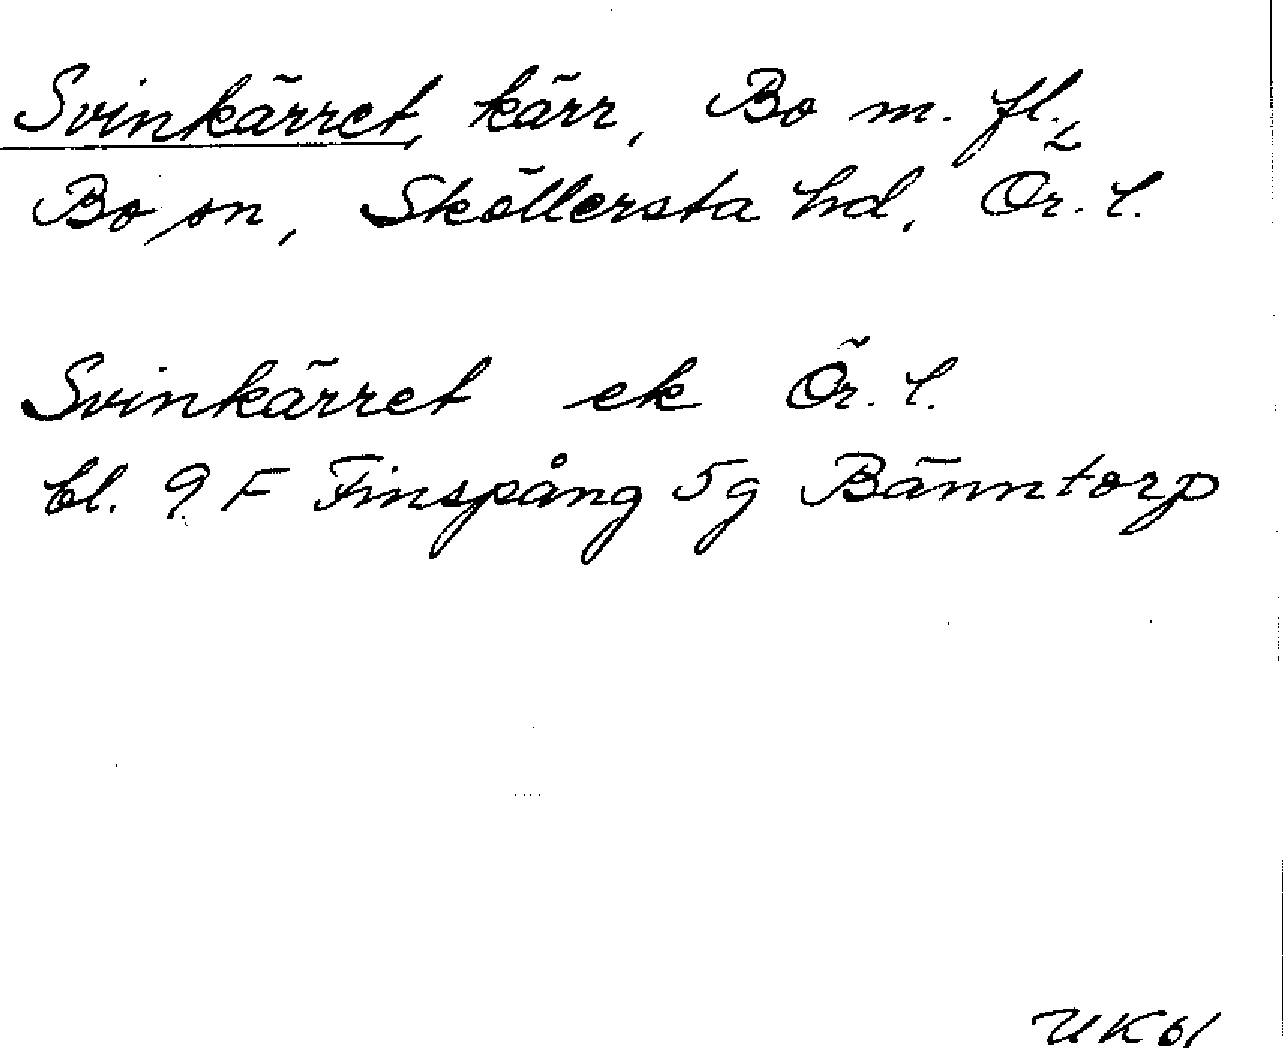 Svinkärret, kärr, Bo m. fl.,
Bo sn, Sköllersta hd, Ör. l.
Svinkärret ek Ör. l.
bl. 9 F Finspång 5g Bänntorp
UK 61